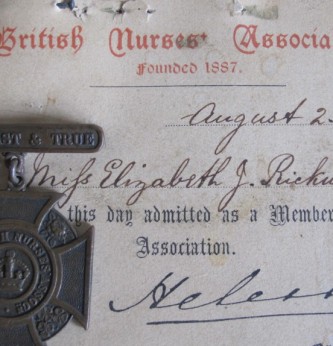 British Nurses' Associa
Founded 1887.
August 2
ST & TRUE
Miss Elizabeth J. Ricku
this day admitted as a Member
Association.
Helen